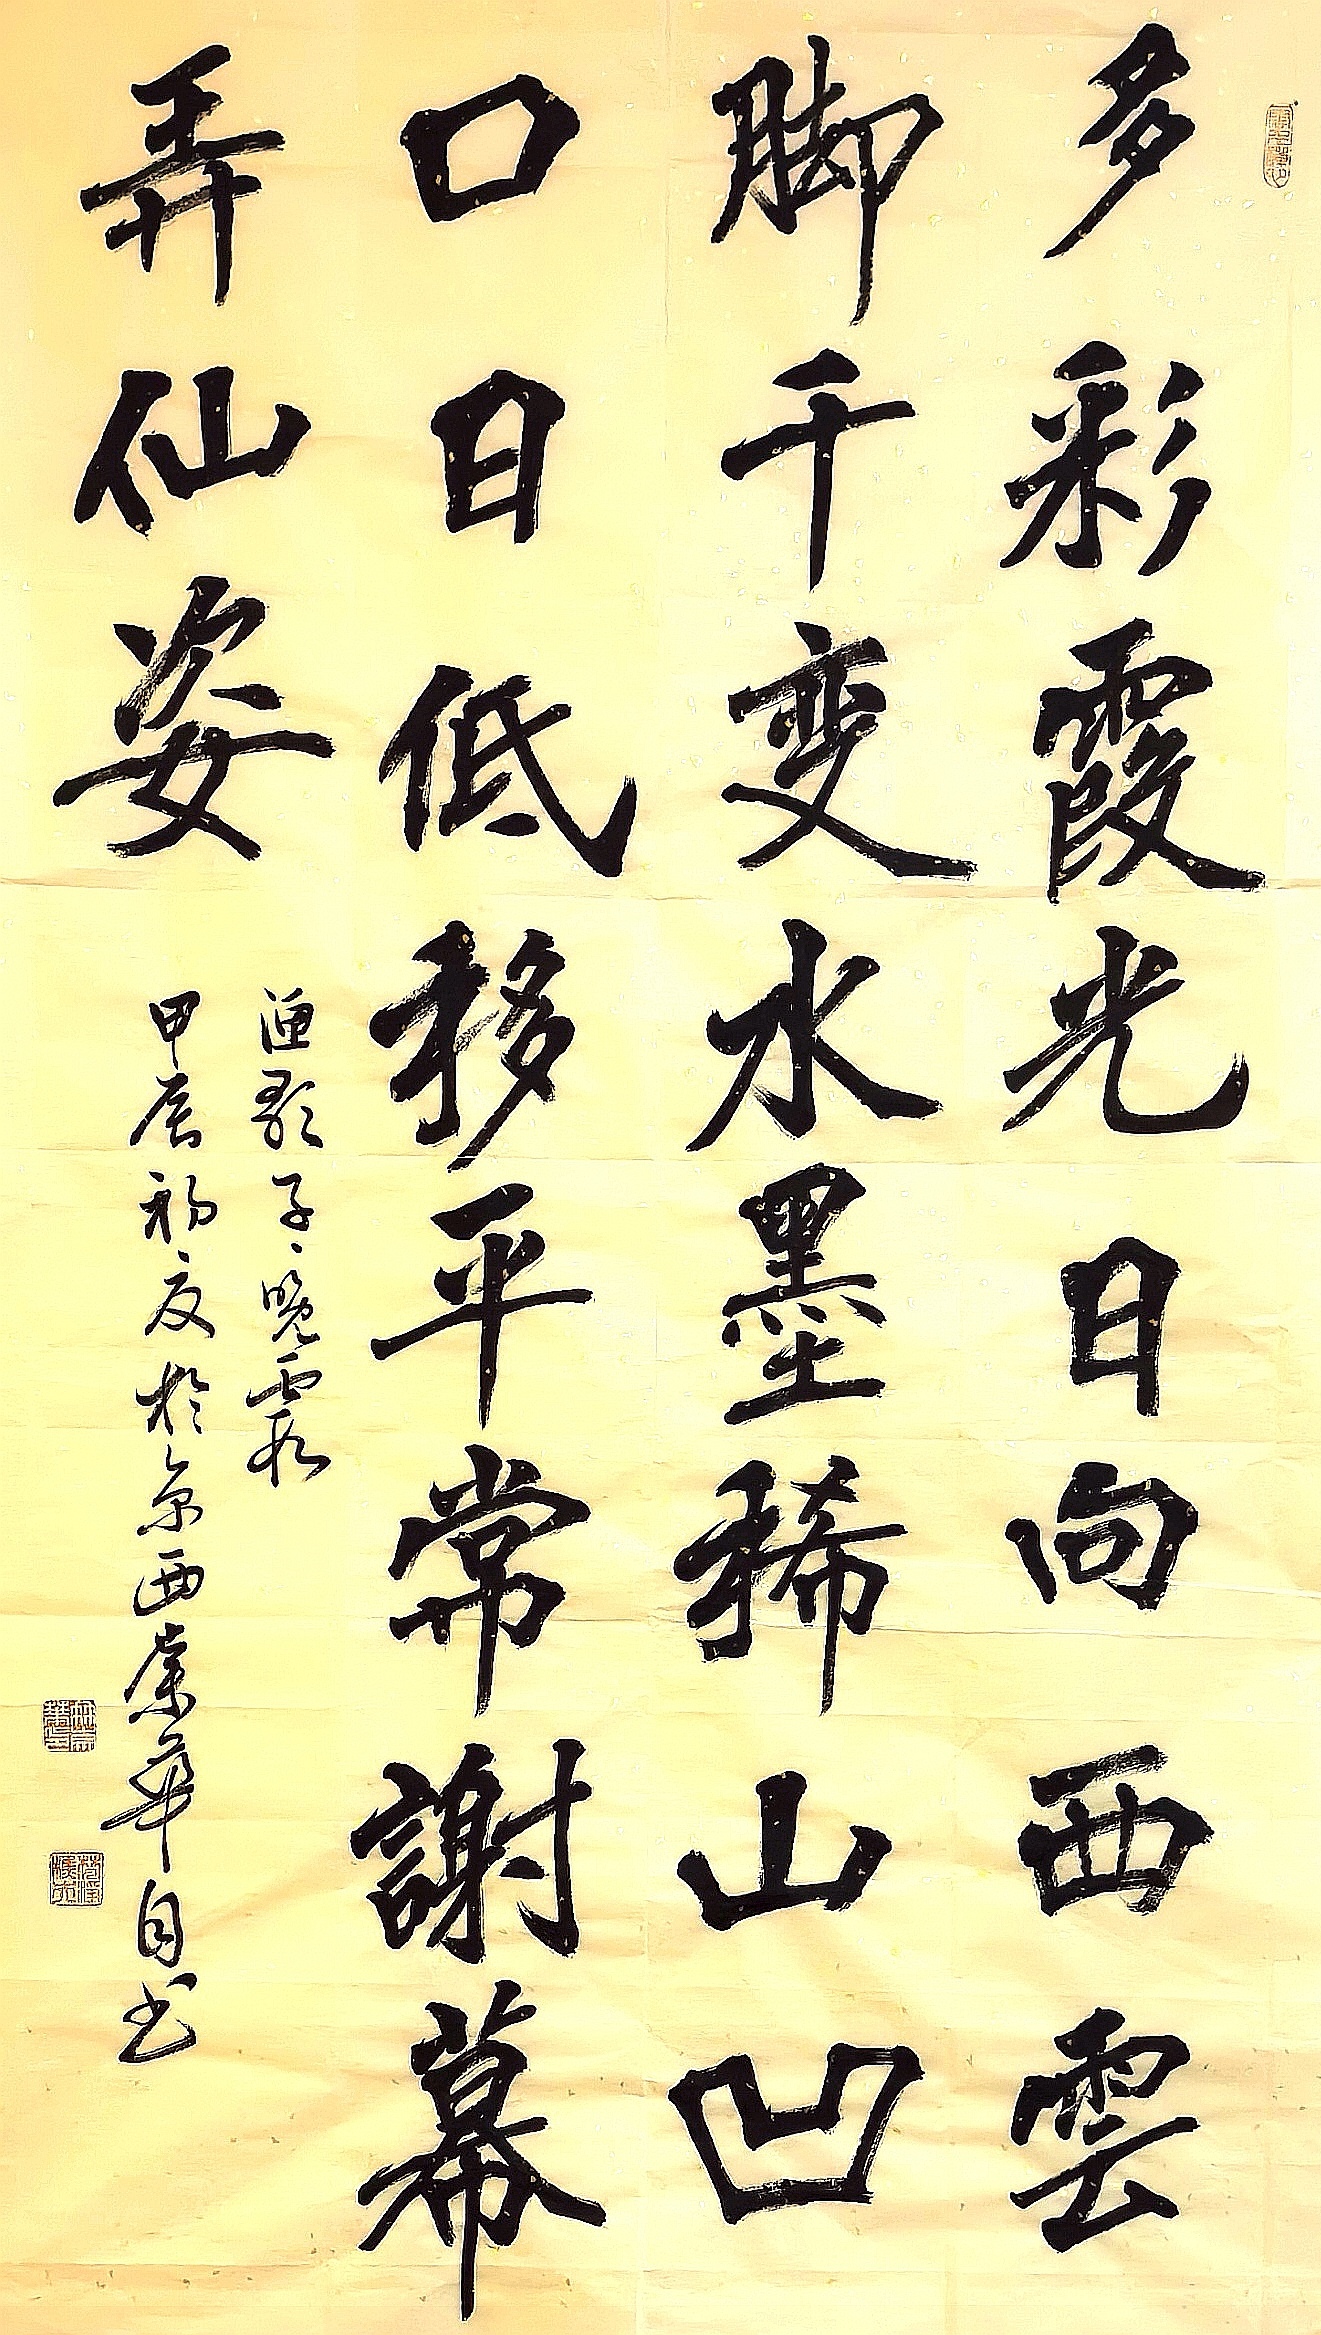 多彩霞光日向西雲
脚千变水墨稀山凹
口日低移平常謝幕
弄仙姿
渔歌子、晚霞
甲辰初夏於京西荣華自书